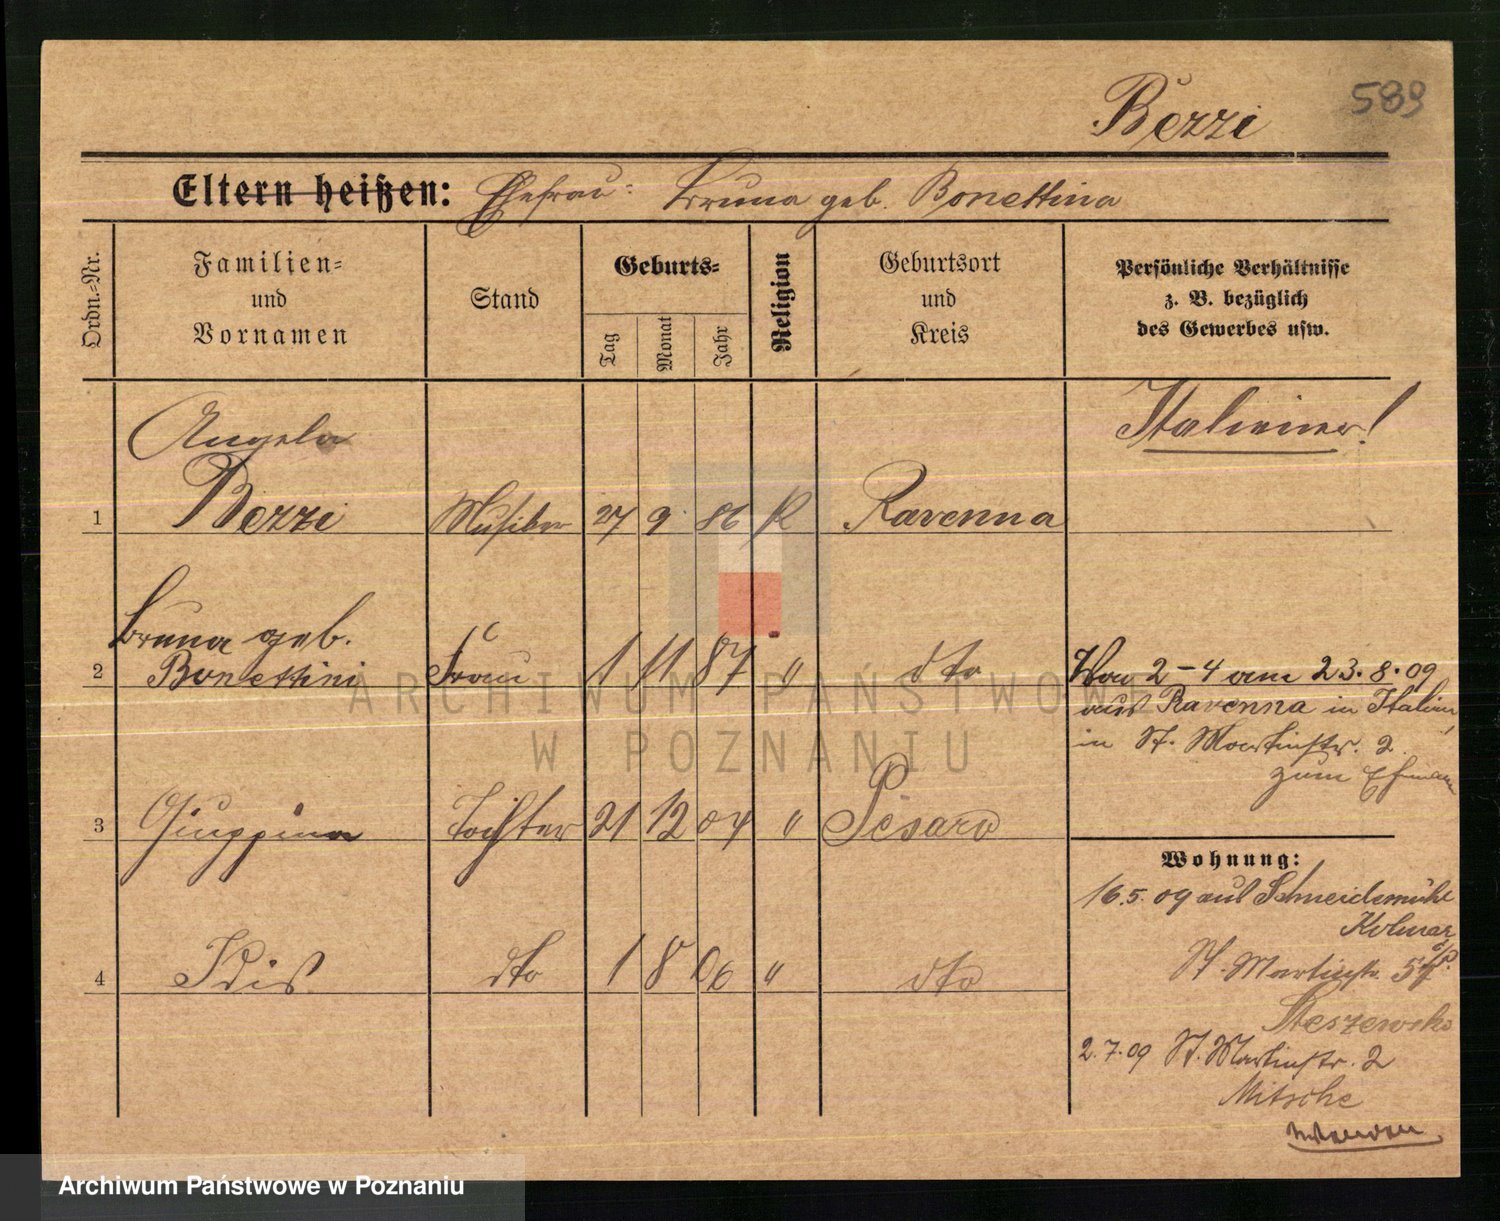 589
Bezzi
Eltern heißen: Ehefrau: Bruna geb. Bonettina
Ordn.-Nr.
Familien-
und
Vornamen
Stand
Geburts-
Tag
Monat
Jahr
Religion
Geburtsort
und
Kreis
Persönliche Verhältnisse
z. B. bezüglich
des Gewerbes usw.
Angelo
1 Bezzi Musiker 27 9 86 K Ravenna
Italiener!
Bruna geb.
2 Bonettini Frau 1 11 87 " dto
No 2-4 am 23.8.09
aus Ravenna in Italien,
in St. Martinstr. 2
zum Ehemann
3 Giuppina Tochter 21 12 04 " Pesaro
4 Idis dto 1 8 06 " dto
Wohnung:
16.5.09 aus Schneidemühl
Kolmar
St. Martinstr. 57
Steszewski
2.7.09 St. Martinstr. 2
Mitsche
wenden
ARCHIWUM PAŃSTWOWE
W POZNANIU
Archiwum Państwowe w Poznaniu